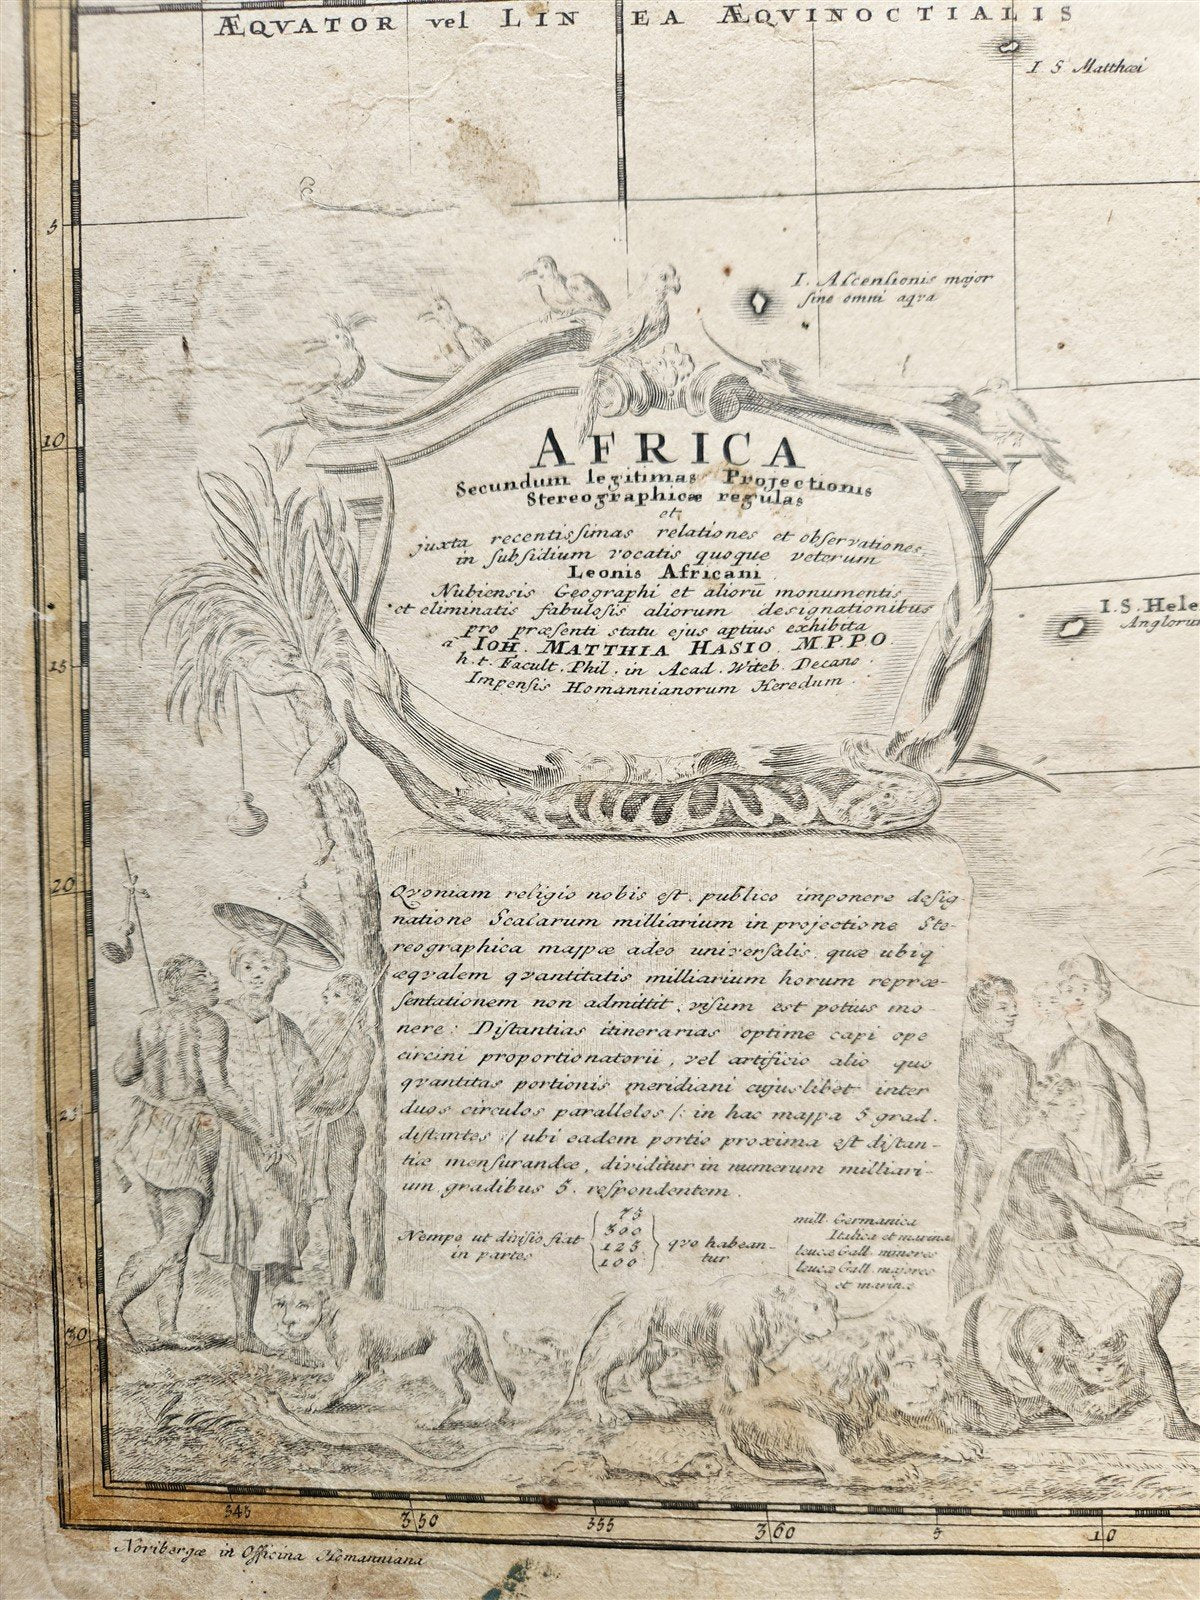 ÆQVATOR vel LINEA ÆQVINOCTIALIS
I S Matthæi
5
I. Ascensionis major
sine omni aqva
10
AFRICA
Secundum legitimas Projectionis
Stereographicæ regulas
et
juxta recentissimas relationes et observationes,
in subsidium vocatis quoque veterum
Leonis Africani
Nubiensis Geographi et aliorū monumentis
et eliminatis fabulosis aliorum designationibus
pro præsenti statu ejus aptius exhibita
a IOH. MATTHIA HASIO M.P.P.O.
h.t. Facult. Phil. in Acad. Witeb. Decano
Impensis Homannianorum Heredum.
I.S. Hele
Angloru
15
20
Qvoniam religio nobis est, publico imponere desig
natione Scalarum milliarium in projectione Ste-
reographica mappæ adeo universalis, quæ ubiq
æqvalem qvantitatis milliarium horum repræ-
sentationem non admittit, visum est potius mo-
nere: Distantias itinerarias optime capi ope
circini proportionatorii, vel artificio alio quo
qvantitas portionis meridiani cujuslibet inter
duos circulos parallelos /: in hac mappa 5 grad.
distantes :/ ubi eadem portio proxima est distan-
tiæ mensurandæ, dividitur in numerum milliari-
um, gradibus 5. respondentem.
Nempe ut divisio fiat
in partes
75
300
125
100
qvo habean-
tur
mill. Germanica
Italica et marina
leucæ Gall. minores
leucæ Gall. majores
et marinæ
25
30
345
350
355
360
5
10
Noribergæ in Officina Homanniana